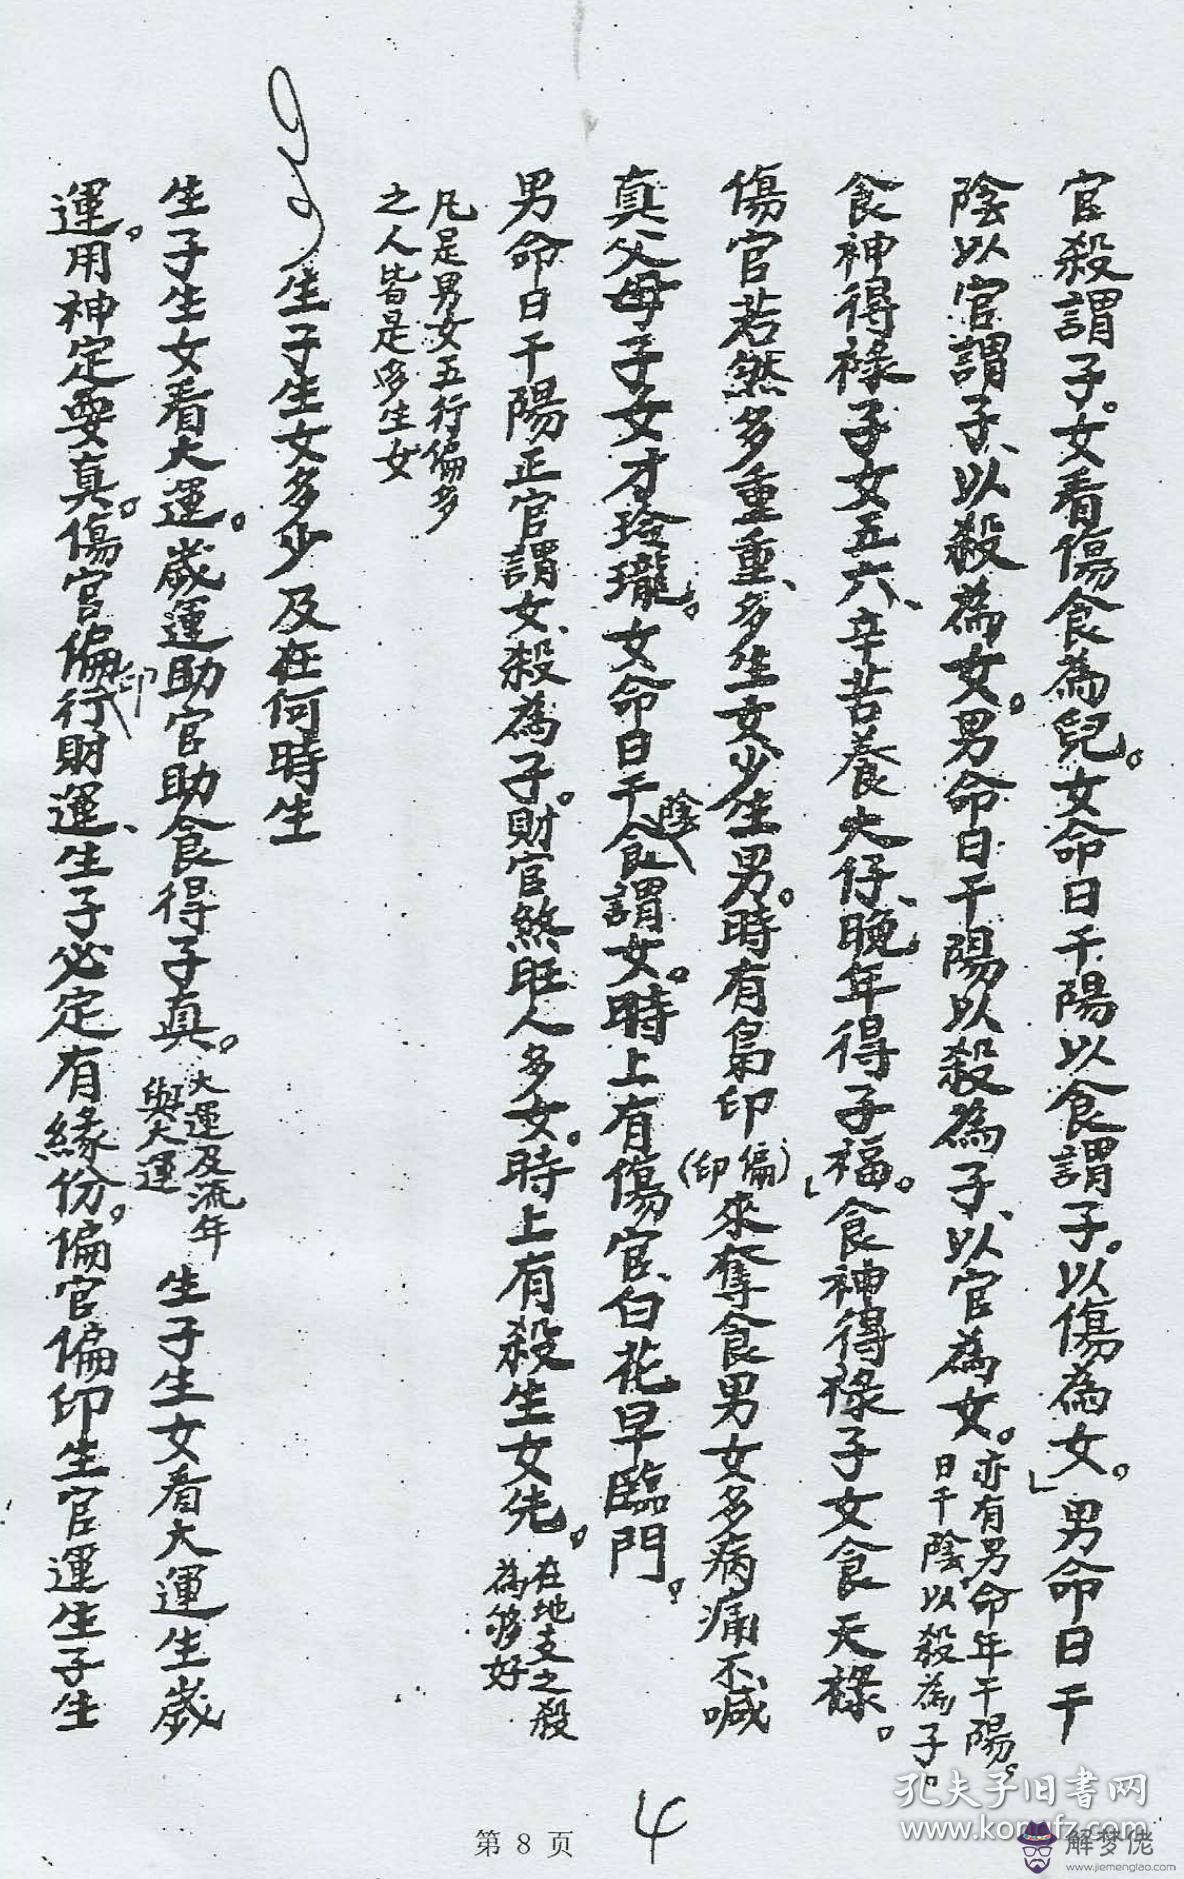 官殺謂子。女看傷食為兒。女命日干陽以食謂子。以傷為女。」男命日干
陰以官謂子、以殺為女。男命日干陽以殺為子、以官為女。亦有男命年干陽。
日干陰以殺為子。
食神得祿子女五六、辛苦養大仔、晚年得子福。」食神得祿子女食天祿。
傷官若然多重重、多生女少生男。時有梟印(偏印)來奪食男女多病痛不、喊
真父母子女才玲瓏。女命日干陰食謂女。時上有傷官、白花早臨門。
男命日干陽正官謂女、殺為子。財官煞旺人多女。時上有殺生女先。在地支之殺
為够好
凡是男女五行偏多
之人皆是多生女
生子生女多少及在何時生
生子生女看大運。歲運助官助食得子真。大運及流年
與大運
生子生女看大運生歲
運。用神定要真。傷官偏印行財運、生子必定有緣份。偏官偏印生官運生子生
第 8 页
4
孔夫子旧书网
www.kongfz.com
解梦佬
www.jiemenglao.com